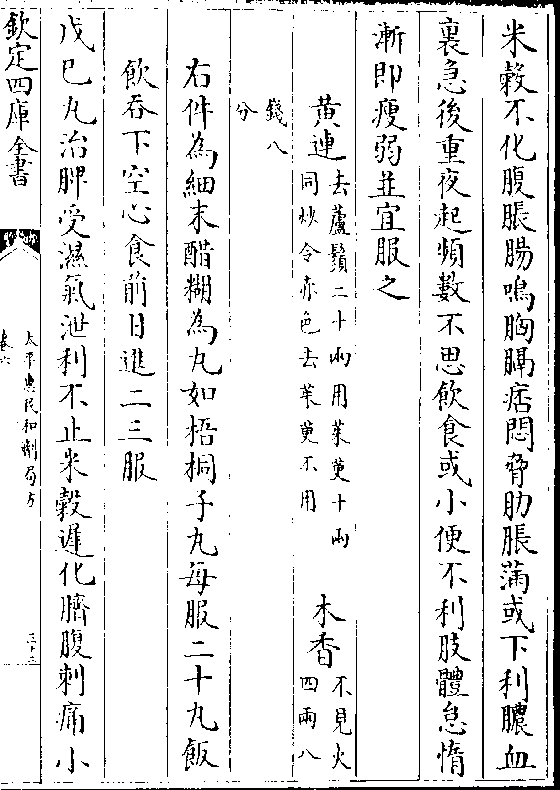 米榖不化腹脹腸鳴胸膈痞悶脅肋脹滿或下利膿血
裏急後重夜起頻數不思飲食或小便不利肢體怠惰
漸即瘦弱並宜服之
黄連去蘆鬚二十兩用茱萸十兩同炒令赤色去茱萸不用 木香不見火四兩八
錢八分
右件為細末醋糊為丸如梧桐子丸每服二十丸飯
飲吞下空心食前日進二三服
戊巳丸治脾受濕氣泄利不止米穀遲化臍腹刺痛小
欽定四庫全書
太平惠民和劑局方
卷六
三十三